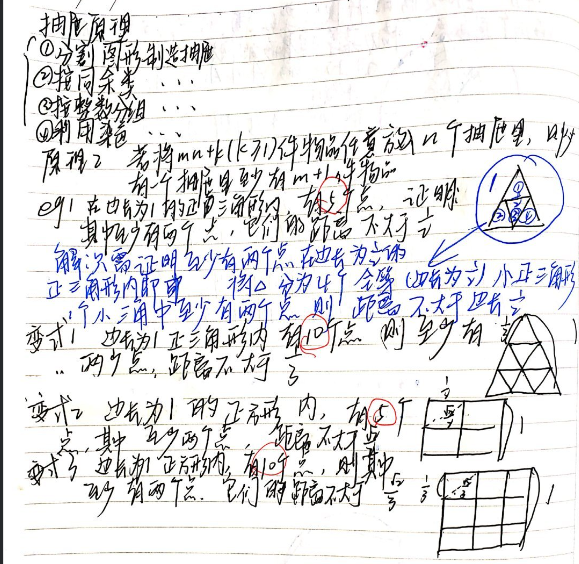 抽屉原理
①分割图形制造抽屉
②按同余类 ···
③按整数分组 ···
④利用染色 ···
原理2 若将mn+k(k≥1)件物品任意放入n个抽屉里，
有一个抽屉里至少有m+1件物品
eg1 在边长为1的正三角形内，有5个点，证明
其中至少有两个点，它们的距离不大于1/2
解 只需证明至少有两个点在边长为1/2的
正三角形内即 将△分为4个全等(边长为1/2)小正三角形
1个小三角中至少有两个点 则 距离不大于边长1/2
变式1 边长为1正三角形内 有10个点 则至少有
两个点，距离不大于1/3
1/3
变式2 边长为1的正方形内，有5个
点，其中至少两个点，距离不大于
1/2
1
变式3 边长为1正方形内，有10个点，则其中
至少有两个点. 它们的距离不大于√2/3
1/3
1